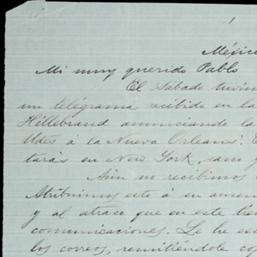 México
Mi muy querido Pablo
El Sábado
un telégrama recibido en la
Hillebrand anunciando la
a la Nueva Orleans.
en New York, sano y
Aún no recibimos
Atribuimos esto á su
y al atraso que en este
comunicaciones. Le he
los correos, remitiéndole